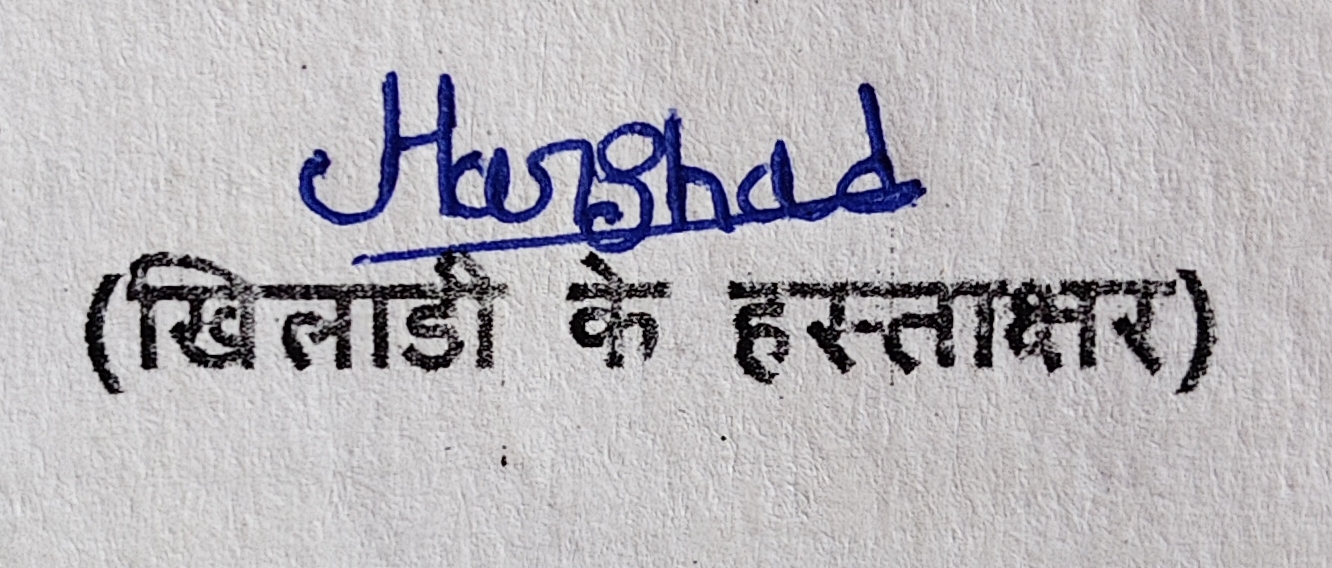 Harshad
(खिलाडी के हस्ताक्षर)